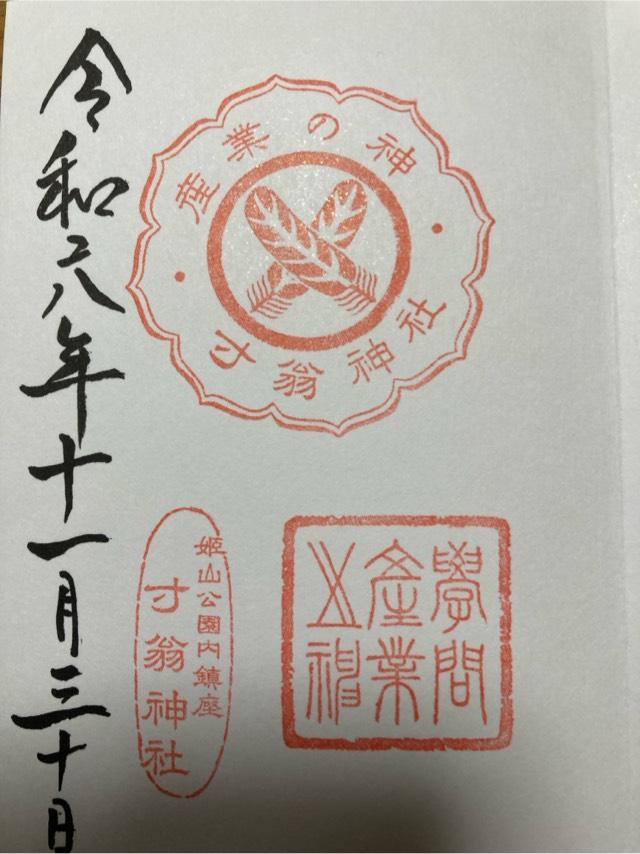 令和六年十一月三十日
産業の神
寸翁神社
姫山公園内鎮座
寸翁神社
學問
産業
之神